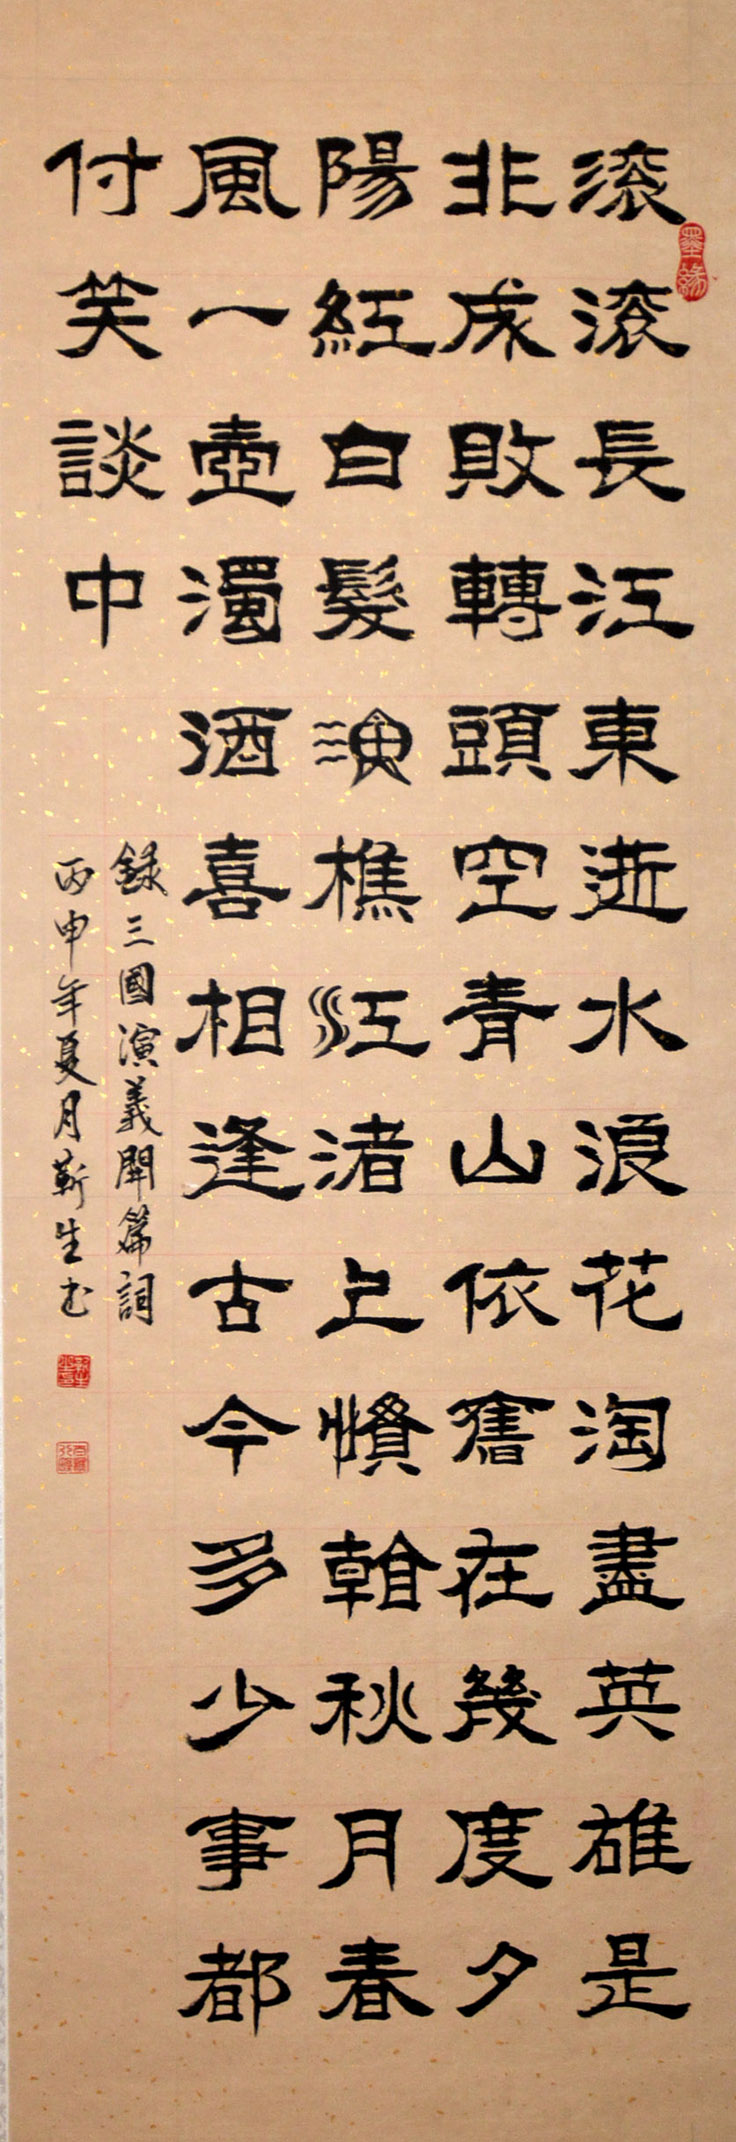 滚滚長江東逝水浪花淘盡英雄是
非成敗轉頭空青山依舊在幾度夕
陽紅白髮漁樵江渚上慣看秋月春
風一壺濁酒喜相逢古今多少事都
付笑談中
錄三國演義開篇詞
丙申年夏月靳生书
墨緣